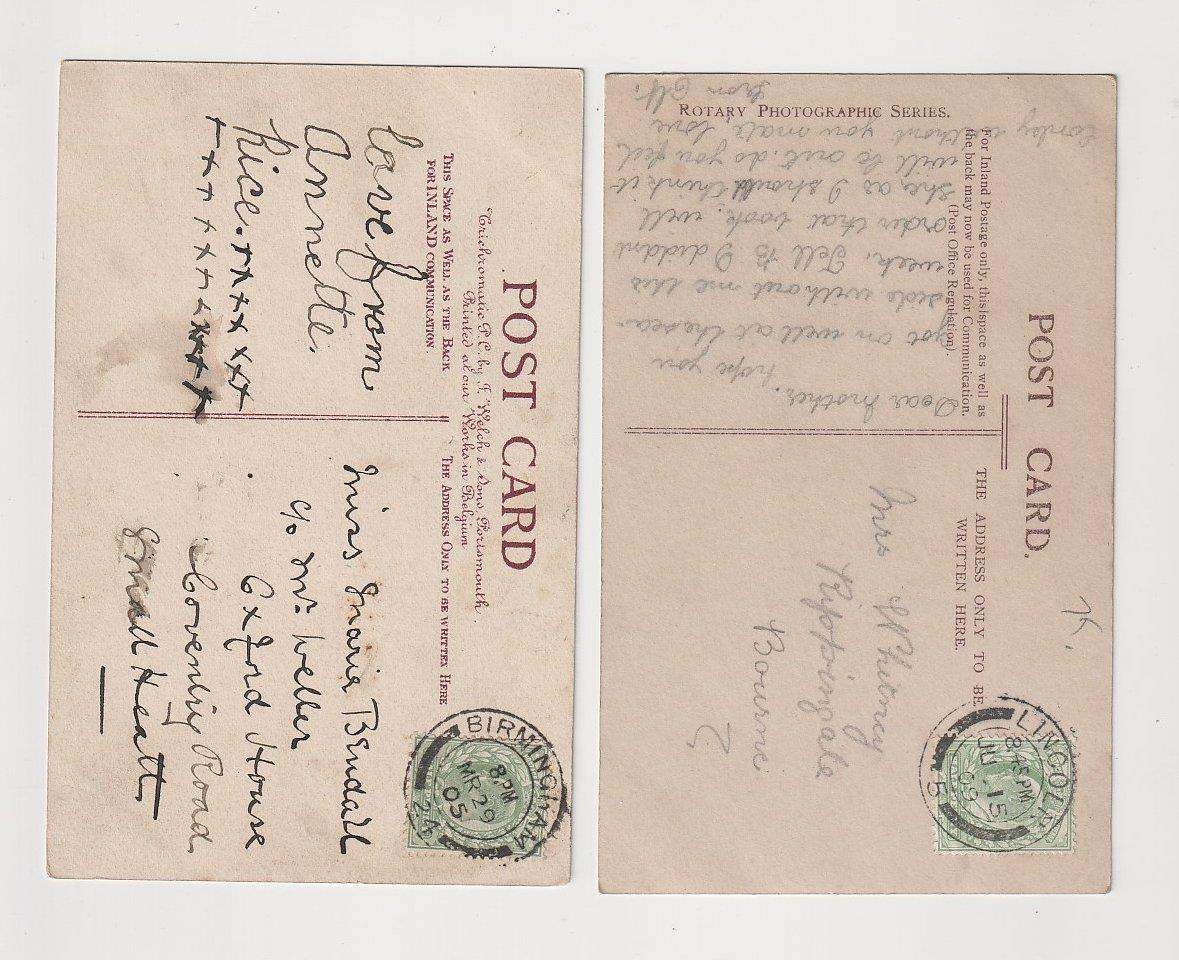 POST CARD
Trichromatic P.C. by J. Welch & Sons, Portsmouth.
Printed at our Works in Belgium
THIS SPACE AS WELL AS THE BACK
FOR INLAND COMMUNICATION.
THE ADDRESS ONLY TO BE WRITTEN HERE
love from
Annette.
Rice. xxxx xxx
xxx xxx xxxx x
Miss Maria Bendall
c/o Mr. Weller
Oxford House
Coventry Road
Small Heath
BIRMINGHAM
8 PM
MR 29
05
24
ROTARY PHOTOGRAPHIC SERIES.
POST CARD.
For Inland Postage only, this space as well as
the back may now be used for Communication.
(Post Office Regulation).
THE ADDRESS ONLY TO BE
WRITTEN HERE.
Dear Mother.
hope you
got on well at the sea-
side without me this
week. Tell B I diddnt
order that book. well
she as I should think it
will be out. do you feel
lonley without you mate love
from
Mrs Whitney
Rippingale
Bourne
LINCOLN
8.45 PM
JU 15
09
5